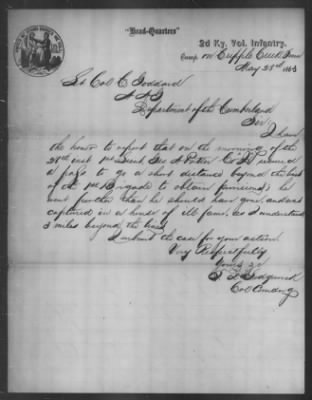 "Head-Quarters"
2d Ky. Vol. Infantry.
Camp on Cripple Creek Tenn
May 23rd 1863
Lt Col C Goddard
A A G
Department of the Cumberland
Sir
I have
the honor to report that on the morning of the
21st Lieut Geo A received
a pass to go a short distance beyond the lines
of the 1st Brigade to obtain forage, he
went further than he should have gone, and was
captured in a house of ill fame, as I understand
3 miles beyond the lines
I submit the case for your action
Very Respectfully
Yours &c
T D Sedgewick
Col Comdg